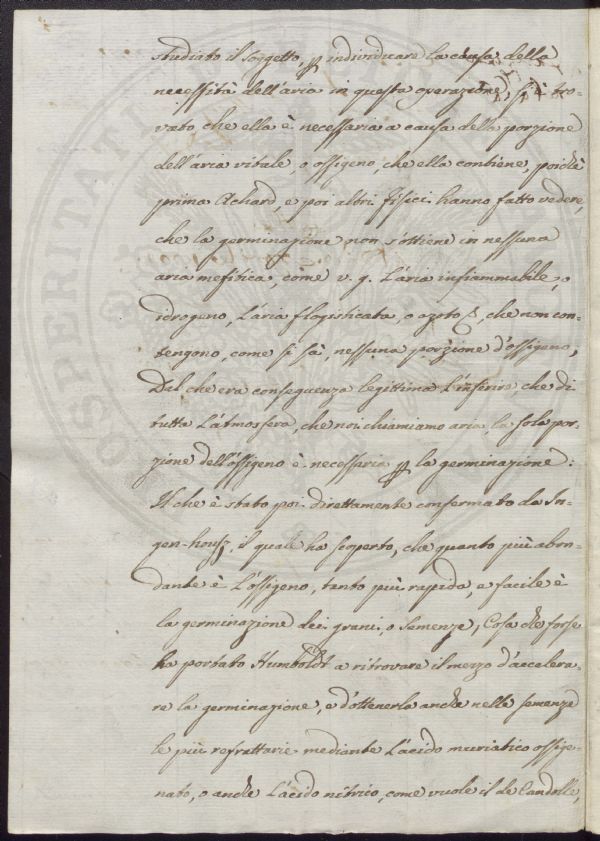 studiato il soggetto, ꝑ individuare la causa della
necessità dell'aria in questa operazione, si è tro-
vato che ella è necessaria a causa della porzione
dell'aria vitale, o ossigeno, che ella contiene, poichè
prima Achard, e poi altri Fisici hanno fatto vedere,
che la germinazione non s'ottiene in nessuna
aria mefitica, come v. g. l'aria infiammabile, o
idrogeno, l'aria flogisticata, o azoto &, che non con-
tengono, come si sà, nessuna porzione d'ossigeno,
Dal che era conseguenza legittima l'inferire, che di
tutta l'atmosfera, che noi chiamiamo aria, la sola por-
zione dell'ossigeno è necessaria ꝑ la germinazione:
Il che è stato poi direttamente confermato da In-
gen-housz, il quale ha scoperto, che quanto più abon-
dante è l'ossigeno, tanto più rapida, e facile è
la germinazione dei grani, o semenze, Cosa che forse
ha portato Humboldt a ritrovare il mezzo d'accelera-
re la germinazione, e d'ottenerla anche nelle semenze
le più refrattarie mediante l'acido muriatico ossige-
nato, o anche l'acido nitrico, come vuole il de Candolle,
PROSPERITATI